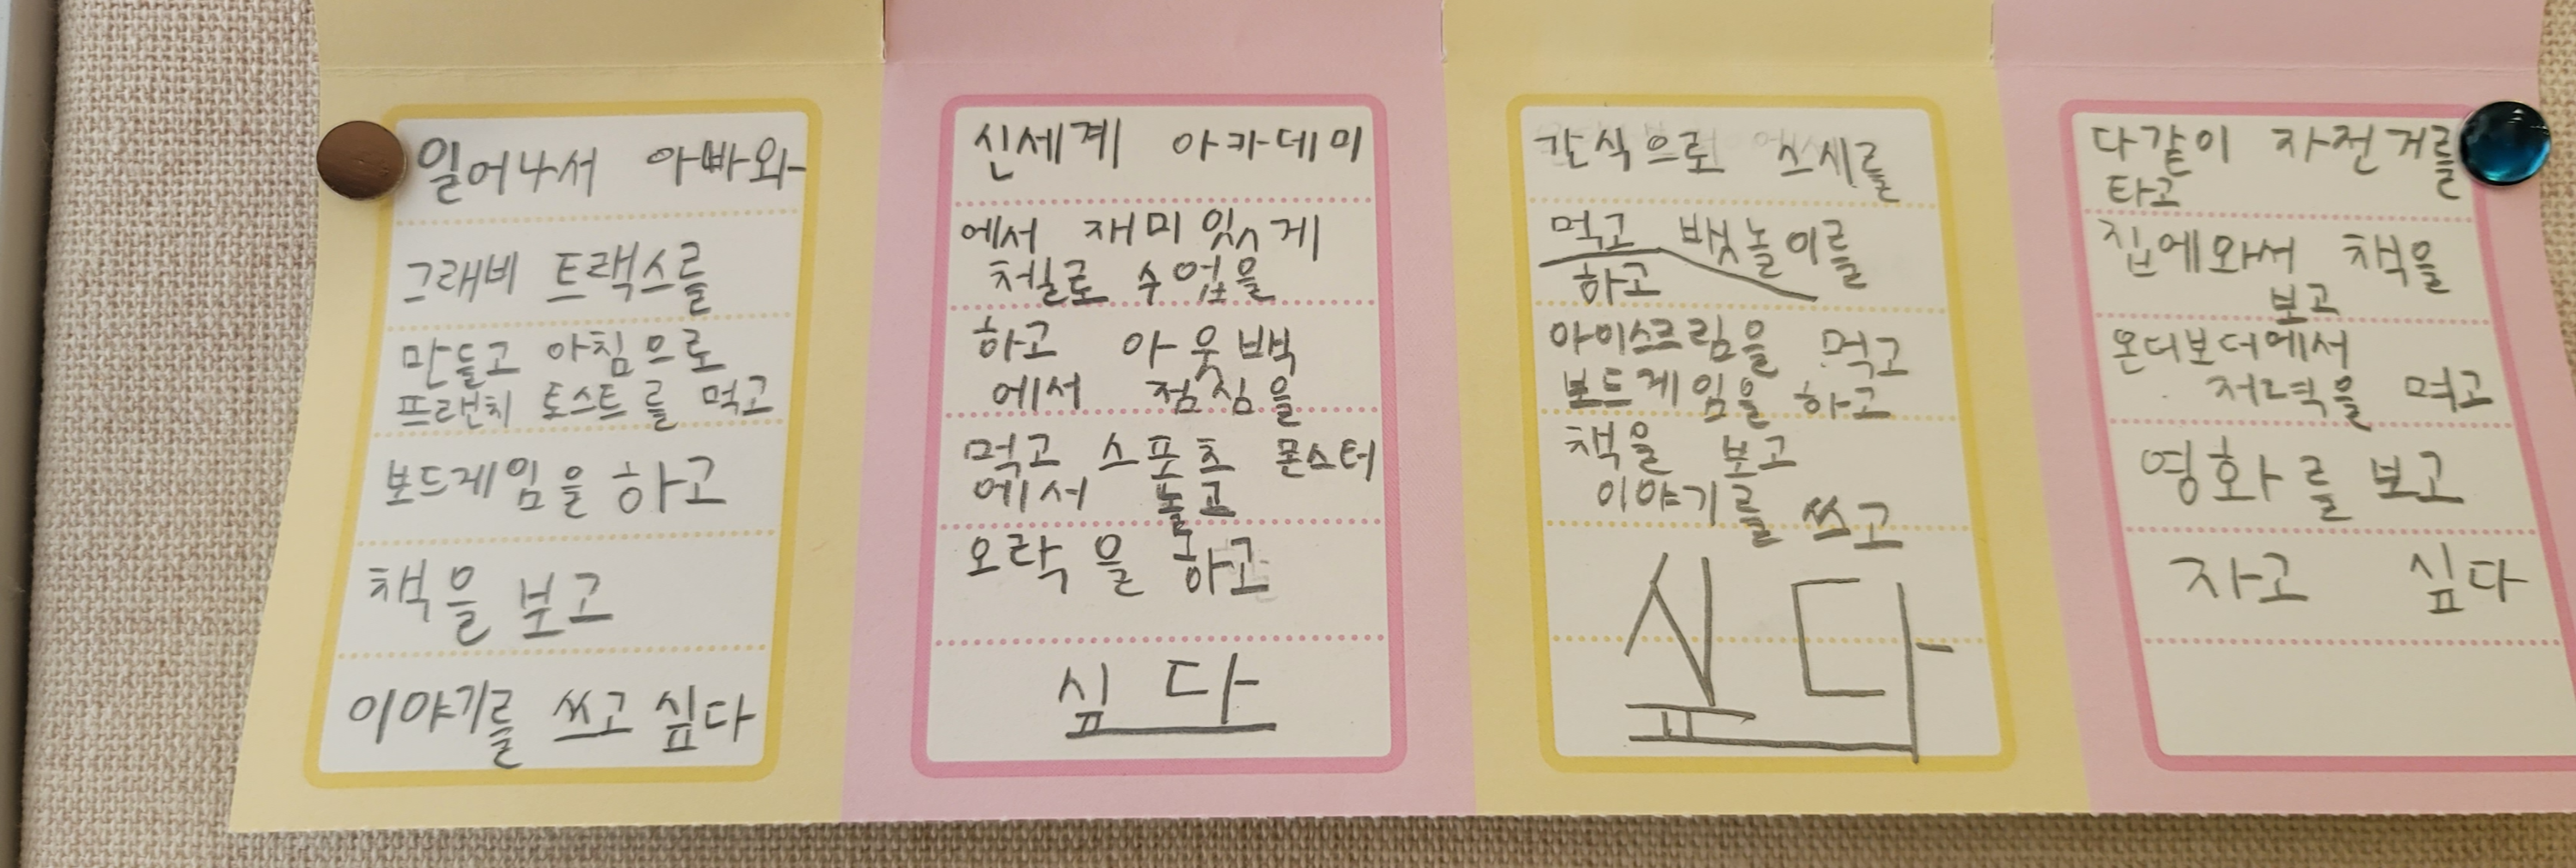 일어나서 아빠와
그래비 트랙스를
만들고 아침으로
프랜치 토스트를 먹고
보드게임을 하고
책을 보고
이야기를 쓰고 싶다
신세계 아카데미
에서 재미있게
수업을
하고 아웃백
에서 점심을
먹고 스포츠 몬스터
에서 놀고
오락을 하고
싶다
간식으로 스시를
먹고 뱃놀이를
하고
아이스크림을 먹고
보드게임을 하고
책을 보고
이야기를 쓰고
싶다
다같이 자전거를
타고
집에와서 책을
보고
온더보더에서
저녁을 먹고
영화를 보고
자고 싶다